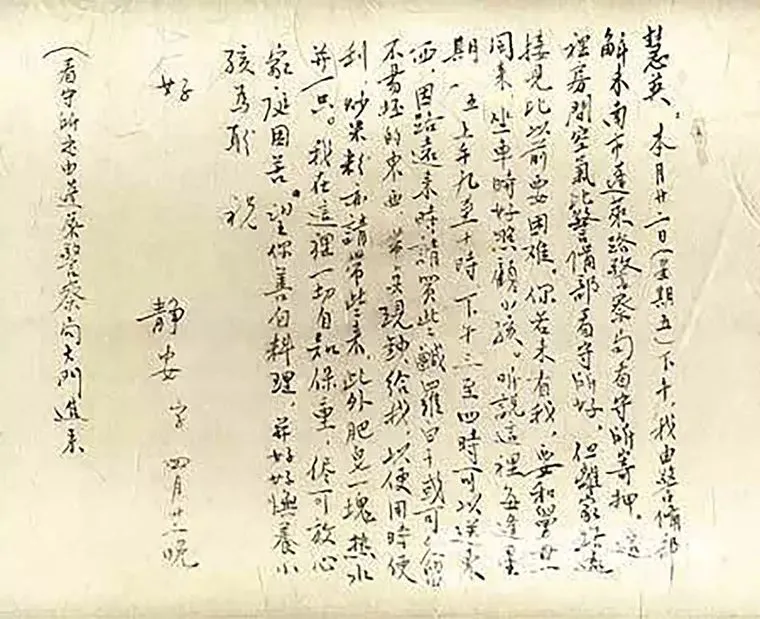 慧英:本月廿二日(星期五)下午,我由警備部
解来南市蓬萊路警察局看守所寄押。這
裡房間空氣比警備部看守所好,但離家路遠
接見比以前要困難。你若来看我,要和學
同来,坐車時好照顧小孩。听說這裡每逢星
期一、五上午九至十時,下午三至四時可以送東
西,因路遠来時請買些鹹羅白干或可久留
不易坏的東西,带点現鈔给我,以便用時便
利,炒米粉亦請带些来,此外肥皂一塊,热水
瓶一只。我在這裡一切自知保重,侭可放心
家庭困苦。望你善自料理,并好好撫養小
孩為盼 祝
好
静安字 四月廿二晚
(看守所是由蓬萊警察局大門進来)